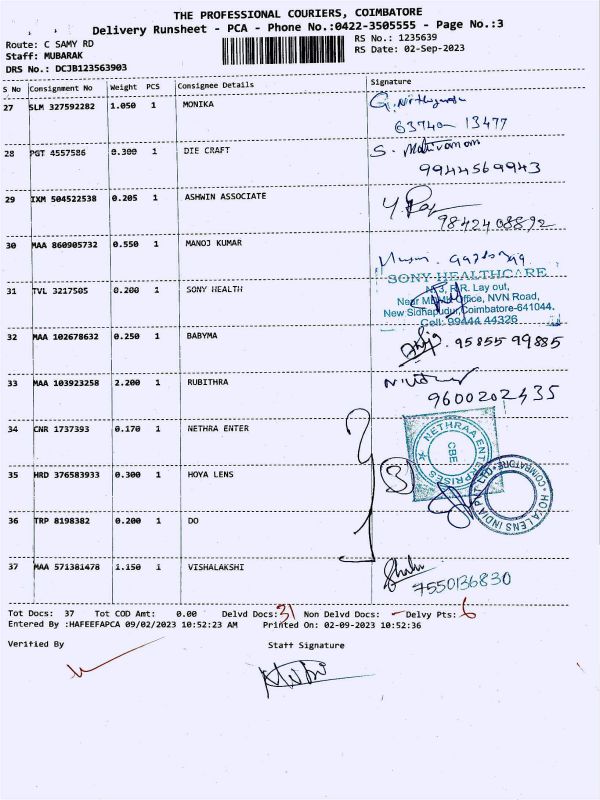 THE PROFESSIONAL COURIERS, COIMBATORE
Delivery Runsheet - PCA - Phone No.:0422-3505555 - Page No.:3
Route: C SAMY RD
RS No.: 1235639
Staff: MUBARAK
RS Date: 02-Sep-2023
DRS No.: DCJB123563903
S No Consignment No Weight PCS Consignee Details Signature
27 SLM 327592282 1.050 1 MONIKA
63740 13477
28 PGT 4557586 0.300 1 DIE CRAFT
9944569943
29 IXM 504522538 0.205 1 ASHWIN ASSOCIATE
9842408892
30 MAA 860905732 0.550 1 MANOJ KUMAR
SONY HEALTHCARE
31 TVL 3217505 0.200 1 SONY HEALTH
R.R. Lay out,
Office, NVN Road,
New Sidhapudur, Coimbatore-641044.
Cell: 99444 44326
32 MAA 102678632 0.250 1 BABYMA
95855 99885
33 MAA 103923258 2.200 1 RUBITHRA
9600202435
34 CNR 1737393 0.170 1 NETHRA ENTER
NETHRAA ENTERPRISES
CBE
35 HRD 376583933 0.300 1 HOYA LENS
3
HOYA LENS INDIA PVT LTD
COIMBATORE
36 TRP 8198382 0.200 1 DO
37 MAA 571381478 1.150 1 VISHALAKSHI
7550136830
Tot Docs: 37 Tot COD Amt: 0.00 Delvd Docs: 31 Non Delvd Docs: - Delvy Pts: 6
Entered By :HAFEEFAPCA 09/02/2023 10:52:23 AM Printed On: 02-09-2023 10:52:36
Verified By
Staff Signature